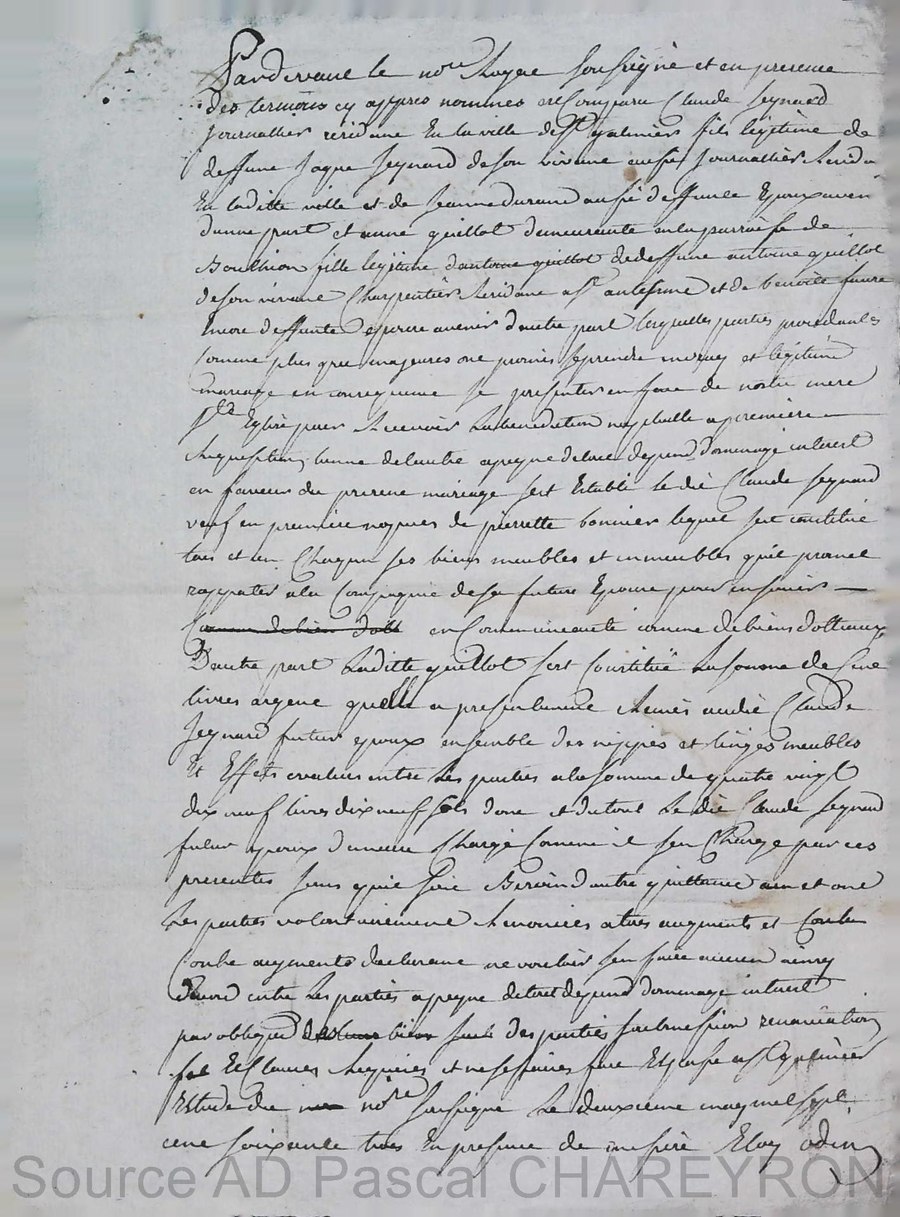 Pardevant le nore Royal soussigné et en presence
des temoins cy appres nommes est Comparu Claude Seynard
Journallier résidant En la ville de St galmier fils légitime de
deffunt Jaque Seynard de son vivant aussi Journallier
En laditte ville et de Jeanne durand aussi deffunte Epoux
dune part et anne guillot demeurante en la parroisse de
Bouthion fille legitime dantoine guillot de deffunt antoine guillot
de son vivant Charpentier Residant a St et de benoite faure
Encore deffunte epouse avenir dautre part lesquelles parties procedantes
Comme plus que majeures ont promis se prendre en vray et légitime
mariage en consequence se presenter en face de nostre mere
Ste Eglise pour Recevoir La benediction nuptialle a premiere
Requisition lunne de lautre a peyne de tous depend dommage interest
en faveur du present mariage sest Establi le dit Claude Seynard
veuf en premiere nopces de pierrette bonnier lequel sest constitué
tous et un Chaqun ses biens meubles et immeubles quil promet
rapporter a la Compagnie de sa future Epouse pour en jouir
en Communeauté comme de biens dottaux
Dautre part Laditte guillot sest Constitué La somme de Cent
livres argent quelle a presentement Remis audit Claude
Seynard futur epoux ensemble des nippes et linges meubles
Et Effets evalues entre Les parties a la somme de quatre vingt
dix neuf livres dix neuf sols dont et du tout Le dit Claude Seynard
futur epoux demeure Chargé Comme il sen Charge par ces
presentes sans quil soit Besoin dautre quittance et ont
Les parties volontairement Renoncées a tous augments et Contre
Contre augments declarant ne vouloir sen faire aucun ainsy
Convenu entre Les parties a peyne de tout depend dommage interest
par obligeo des leurs bien parties soubmission renonciation
Et Clauses Requises et nessessaires fait Et passé a St galmier
Estude du nore soussigné Le deuxieme may mil sept
cent soixante trois En presence de messire Eloy odin
Source AD Pascal CHAREYRON